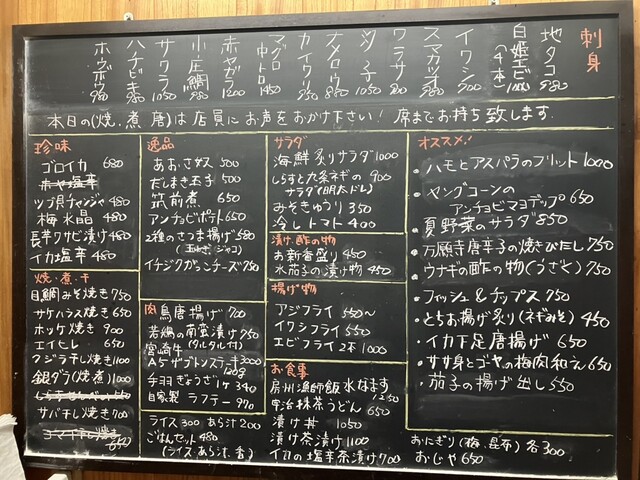 刺身
地タコ 980
白姫エビ (4本) 1000
イワシ 700
スマカツオ 980
ワラサ 980
ツノ子 1050
ナメロウ 850
カイワリ 950
マグロ中トロ 1450
赤ヤガラ 1200
小庄鯛 980
サワラ 1050
ハチビキ 980
ホウボウ 980
本日の(焼.煮 唐)は店員にお声をおかけ下さい! 席までお持ち致します.
珍味
ゴロイカ 680
赤ヤ塩辛
ツブ貝チャンジャ 480
梅水晶 480
長芋ワサビ漬け 480
イカ塩辛 480
逸品
あおさダス 500
だしまき玉子 500
筑前煮 650
アンチョビポテト 650
2種のさつま揚げ 580
(玉ねぎ、ジャコ)
イチジクがっこチーズ 750
サラダ
海鮮炙りサラダ 1000
しらすと九条ネギの 900
サラダ(明太ドレ)
みそきゅうり 350
冷しトマト 400
漬け.酢の物
お新香盛り 450
水茄子の漬け物 450
揚げ物
アジフライ 550~
イワシフライ 550
エビフライ2本 1000
オススメ!
・ハモとアスパラのフリット 1000
・ヤングコーンの
アンチョビマヨデップ 650
・夏野菜のサラダ 850
・万願寺唐辛子の焼きびたし 750
・ウナギの酢の物(うざく) 750
・フィッシュ&チップス 750
・とちお揚げ炙り(ネギみそ) 450
・イカ下足唐揚げ 650
・ササ身とゴーヤの梅肉和え 650
・茄子の揚げ出し 550
焼・煮・干
目鯛みそ焼き 750
サケハラス焼き 650
ホッケ焼き 900
エイヒレ 650
アジラ干し焼き 1100
銀ダラ(焼.煮) 1000
サバ干し焼き 700
ゴマイ干し焼き 650
肉
鳥唐揚げ 700
若鶏の南蛮漬け 750
(タルタル付)
宮崎牛
A5ザブトンステーキ 3000
120g
チョヨぎょうざ1ヶ 340
自家製 ラフテー 970
ライス 300 あら汁 200
ごはんセット 480
(ライス・あら汁、香)
お食事
房州漁師飯 水なます
1250
宇治抹茶うどん 650
漬け丼 1050
漬け茶漬け 1100
イカの塩辛茶漬け 700
おにぎり(梅、昆布) 各300
おじや 650